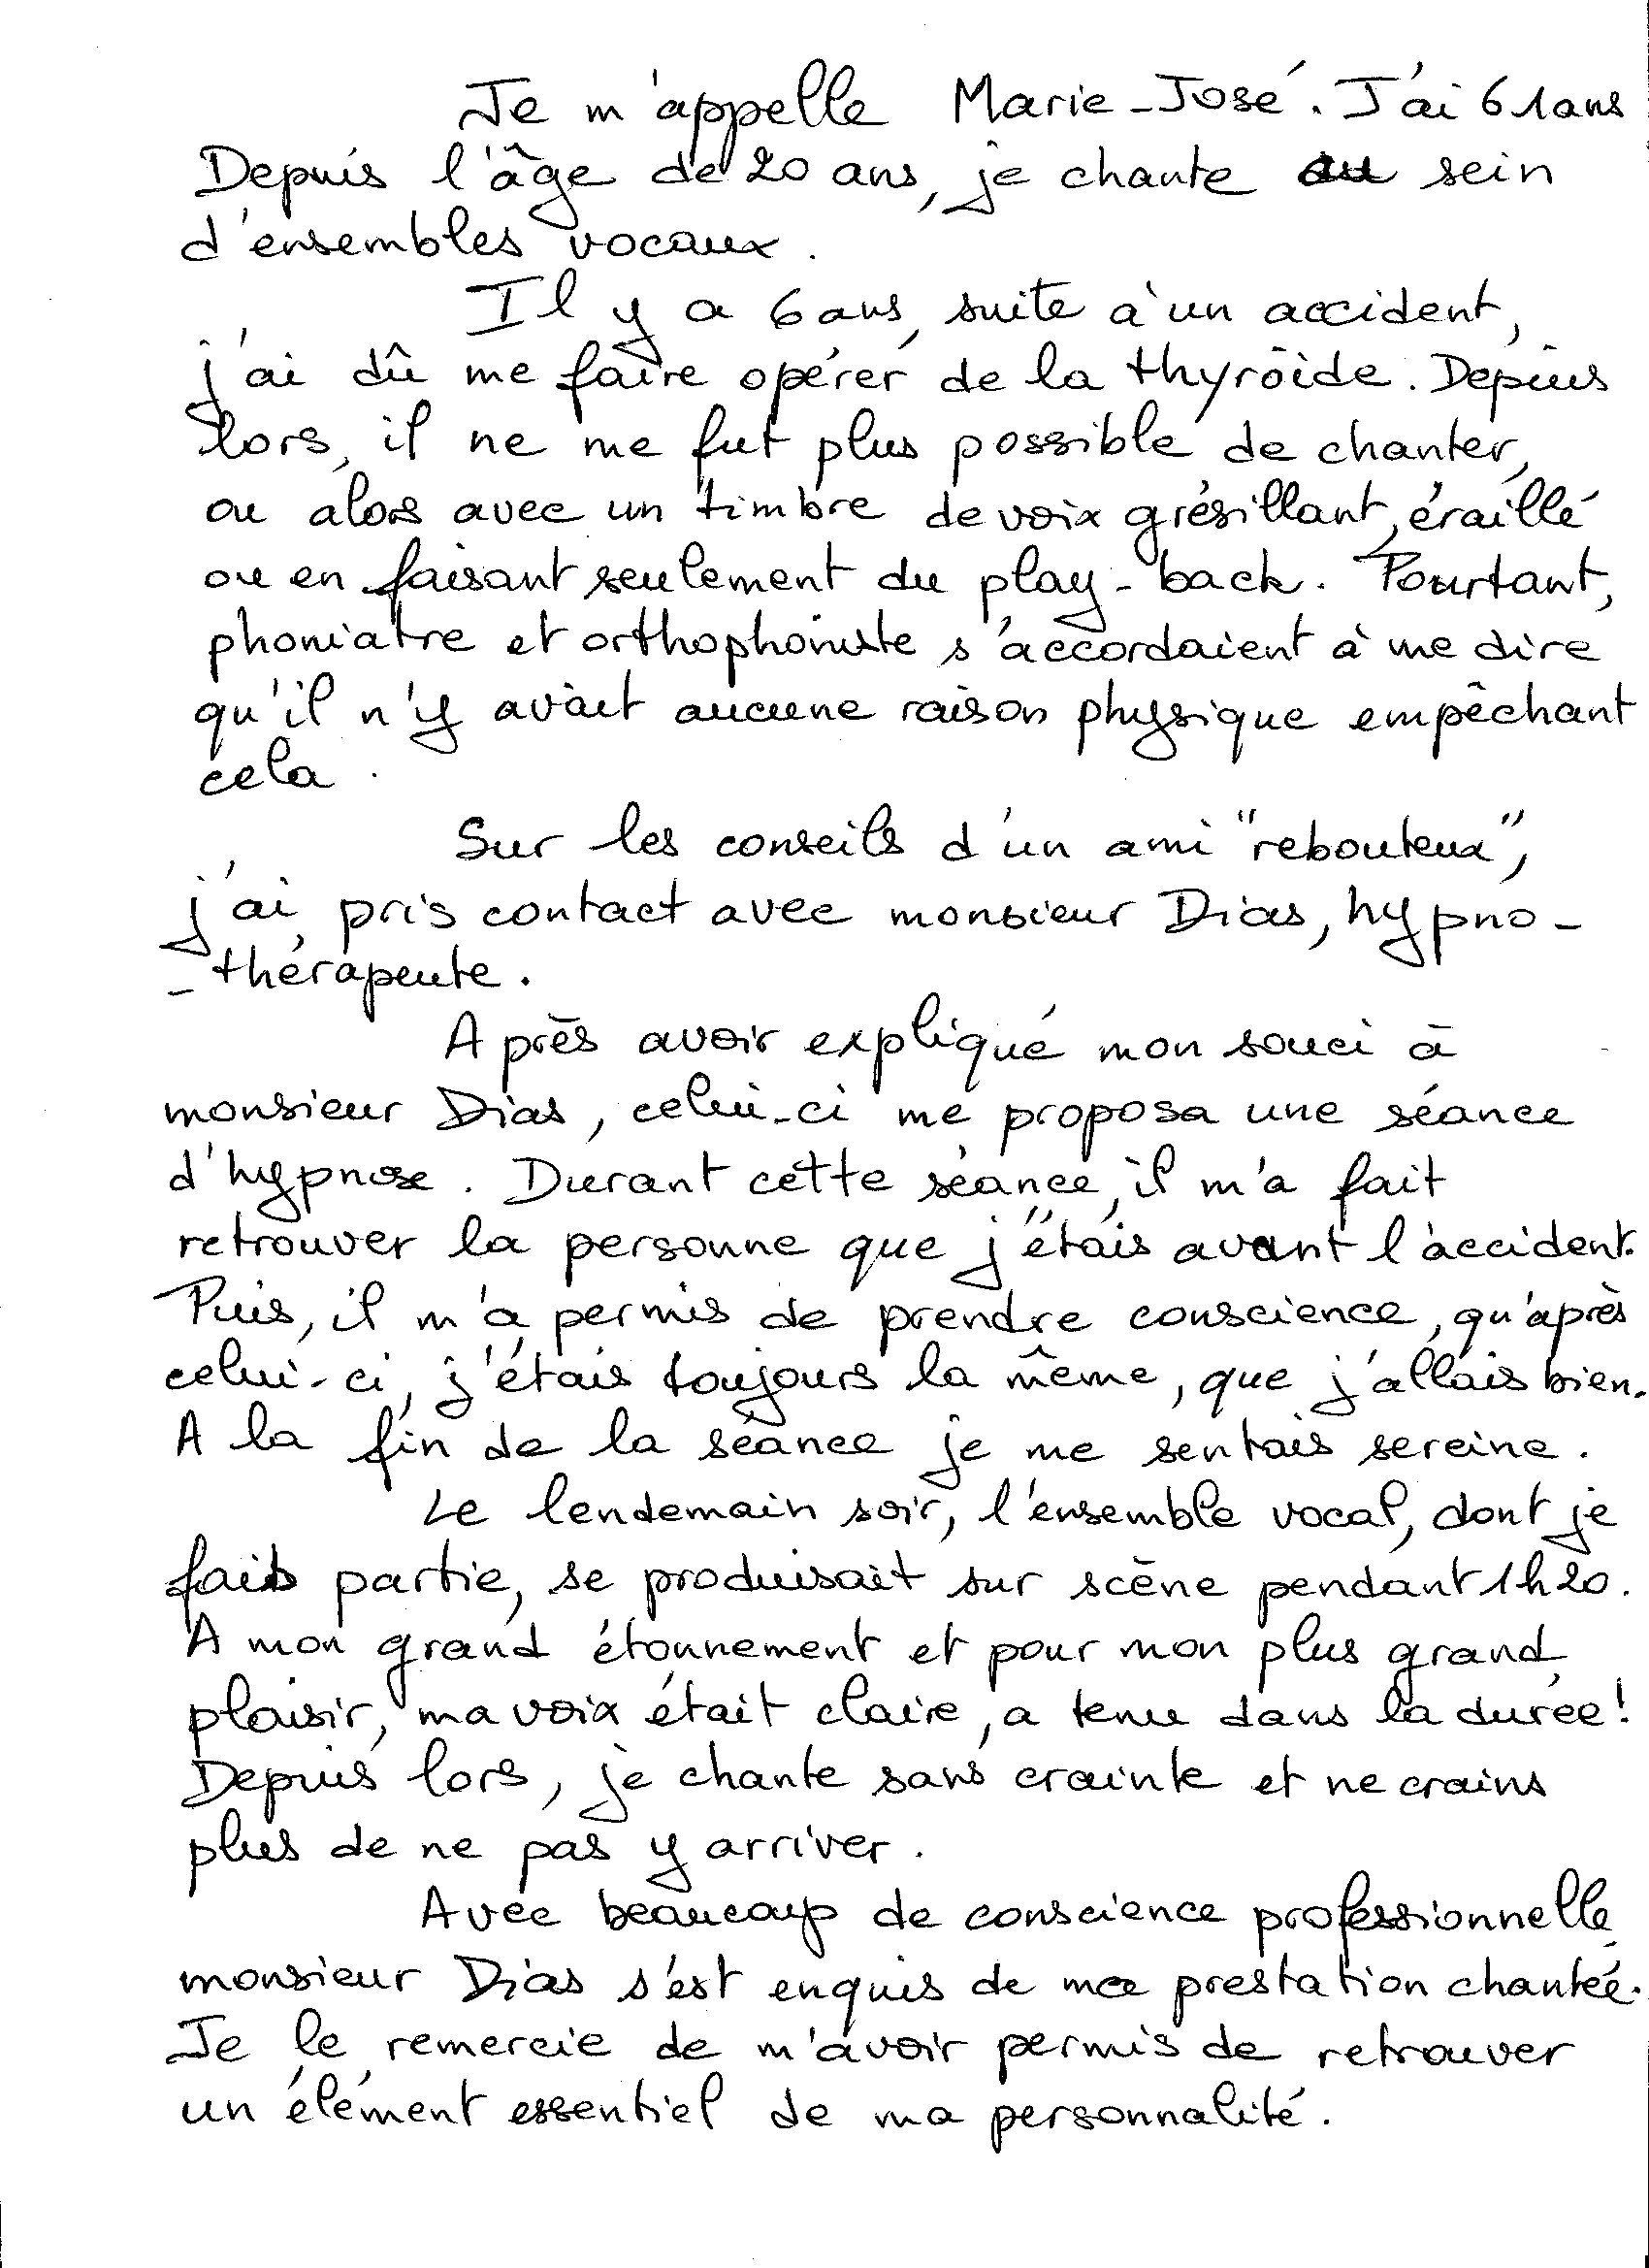 Je m'appelle Marie-José. J'ai 61 ans
Depuis l'âge de 20 ans, je chante au sein
d'ensembles vocaux.
Il y a 6 ans, suite à un accident,
j'ai dû me faire opérer de la thyroïde. Depuis
lors, il ne me fut plus possible de chanter,
ou alors avec un timbre de voix grésillant, éraillé
ou en faisant seulement du play-back. Pourtant,
phoniatre et orthophoniste s'accordaient à me dire
qu'il n'y avait aucune raison physique empêchant
cela.
Sur les conseils d'un ami "rebouteux",
j'ai pris contact avec monsieur Dias, hypno-
-thérapeute.
Après avoir expliqué mon souci à
monsieur Dias, celui-ci me proposa une séance
d'hypnose. Durant cette séance, il m'a fait
retrouver la personne que j'étais avant l'accident.
Puis, il m'a permis de prendre conscience, qu'après
celui-ci, j'étais toujours la même, que j'allais bien.
A la fin de la séance je me sentais sereine.
Le lendemain soir, l'ensemble vocal, dont je
fais partie, se produisait sur scène pendant 1h20.
A mon grand étonnement et pour mon plus grand
plaisir, ma voix était claire, a tenu dans la durée!
Depuis lors, je chante sans crainte et ne crains
plus de ne pas y arriver.
Avec beaucoup de conscience professionnelle
monsieur Dias s'est enquis de ma prestation chantée.
Je le remercie de m'avoir permis de retrouver
un élément essentiel de ma personnalité.